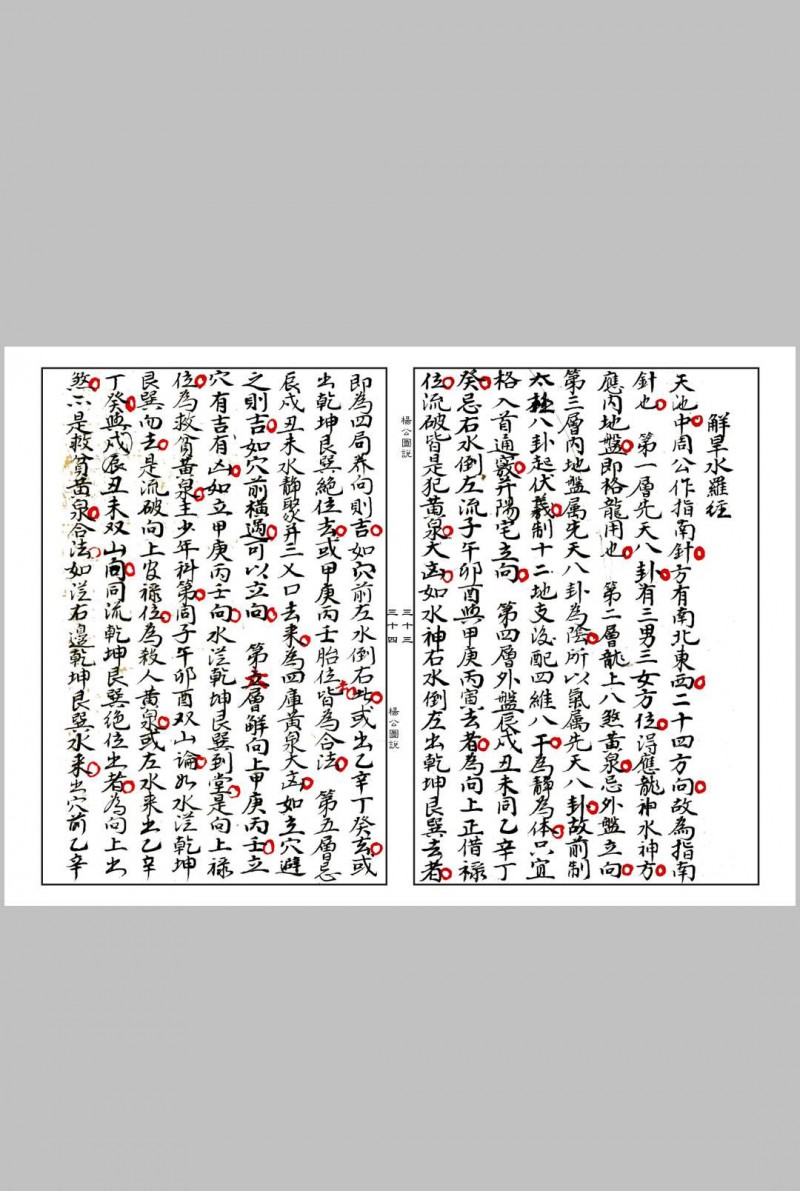 解旱水羅經
天池中周公作指南針方有南北東西二十四方向故為指南
針也 第一層先天八卦有三男三女方位得應龍神水神方
應內地盤即格龍用也 第二層龍上八煞黃泉忌外盤立向
第三層內地盤属先天八卦為陰所以氣属先天八卦故前制
太極八卦起伏羲制十二地支後配四維八干為靜為体只宜
格入首通竅并陽宅立向 第四層外盤辰戍丑未同乙辛丁
癸忌右水倒左流子午卯酉與甲庚丙寅去者為向上正借祿
位流破皆是犯黃泉大凶如水神右水倒左出乾坤艮巽去者
楊公圖說
三十三
三十四
楊公圖說
即為四局养向則吉如穴前左水倒右此或出乙辛丁癸去或
出乾坤艮巽絕位去或甲庚丙壬胎位皆為合法 第五層忌
辰戍丑未水靜聚并三义口去来為四庫黃泉大凶如立穴避
之則吉如穴前橫過可以立向 第五層解向上甲庚丙壬立
穴有吉有凶如立甲庚丙壬向水從乾坤艮巽到堂是向上祿
位為救貧黃泉主少年科第周子午卯酉双山論如水從乾坤
艮巽而去是流破向上官祿位為殺人黃泉或左水来出乙辛
丁癸與戍辰丑未双山向同流乾坤艮巽绝位出者為向上出
煞亦是救貧黃泉合法如從右邊乾坤艮巽水来出穴前乙辛